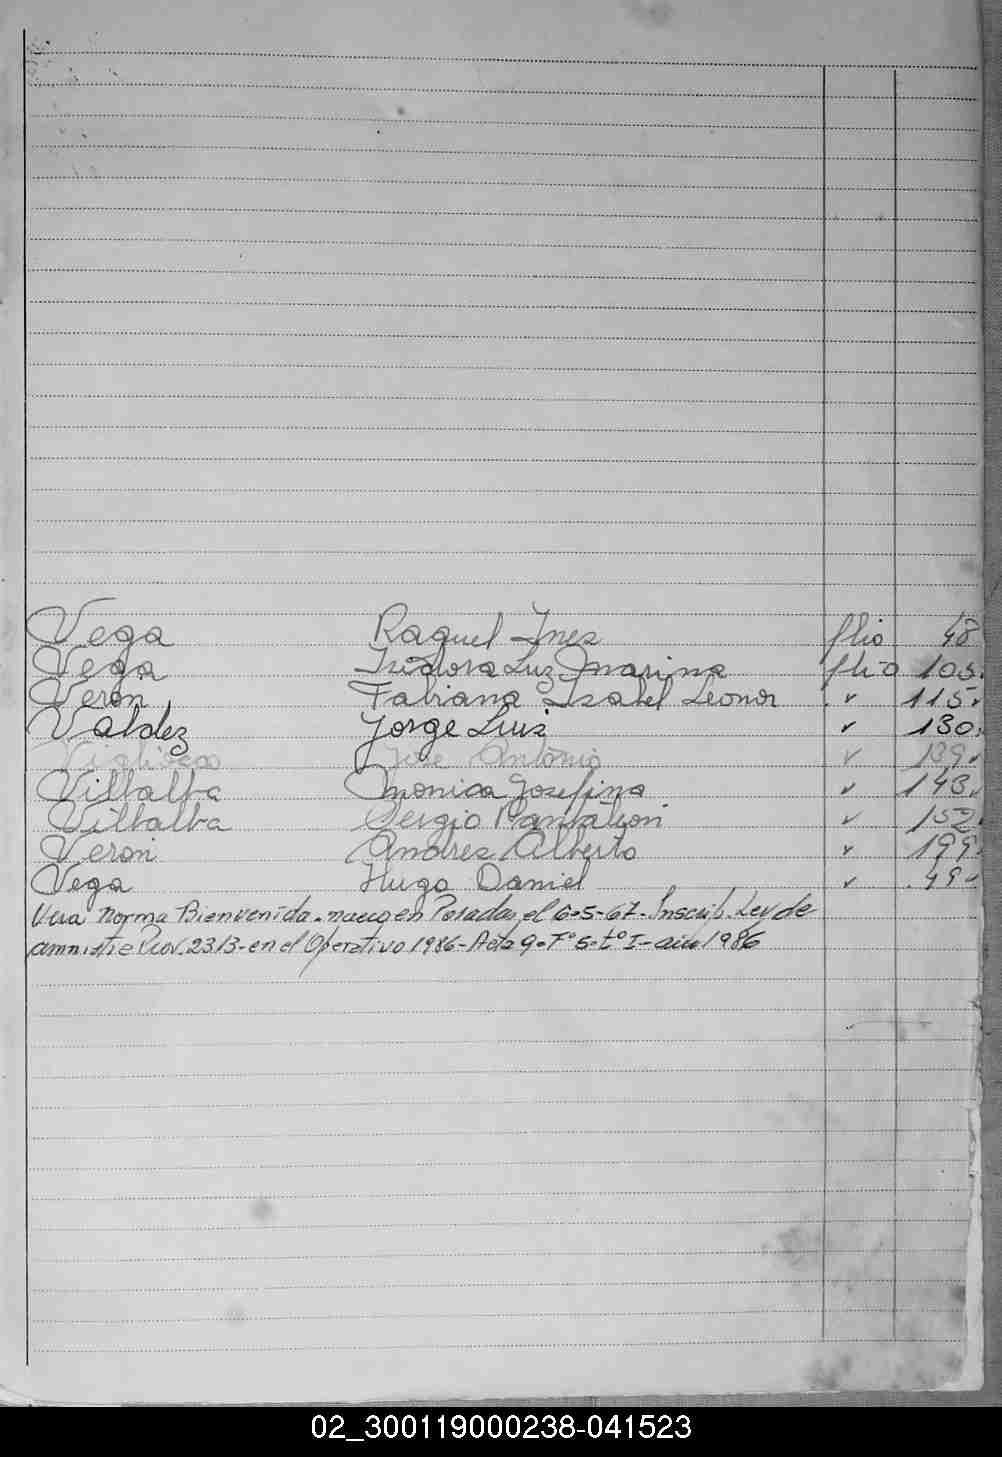 Vega Raquel Ines flio 48
Vega Isidora Luz Marina flio 105
Verón Fabiana Isabel Leonor " 115
Valdez Jorge Luis " 130
José Antonio " 139
Villalba Monica Josefina " 143
Villalba Sergio Pantaleon " 152
Veron Andres Alberto " 199
Vega Hugo Daniel " 49
Vera Norma Bienvenida - nacio en Posadas el 6-5-67 - Inscrip. Ley de
amnistie Prov. 2313 - en el Operativo 1986 - Acta 9 - Fº 5 - tº I - año 1986
02_300119000238-041523